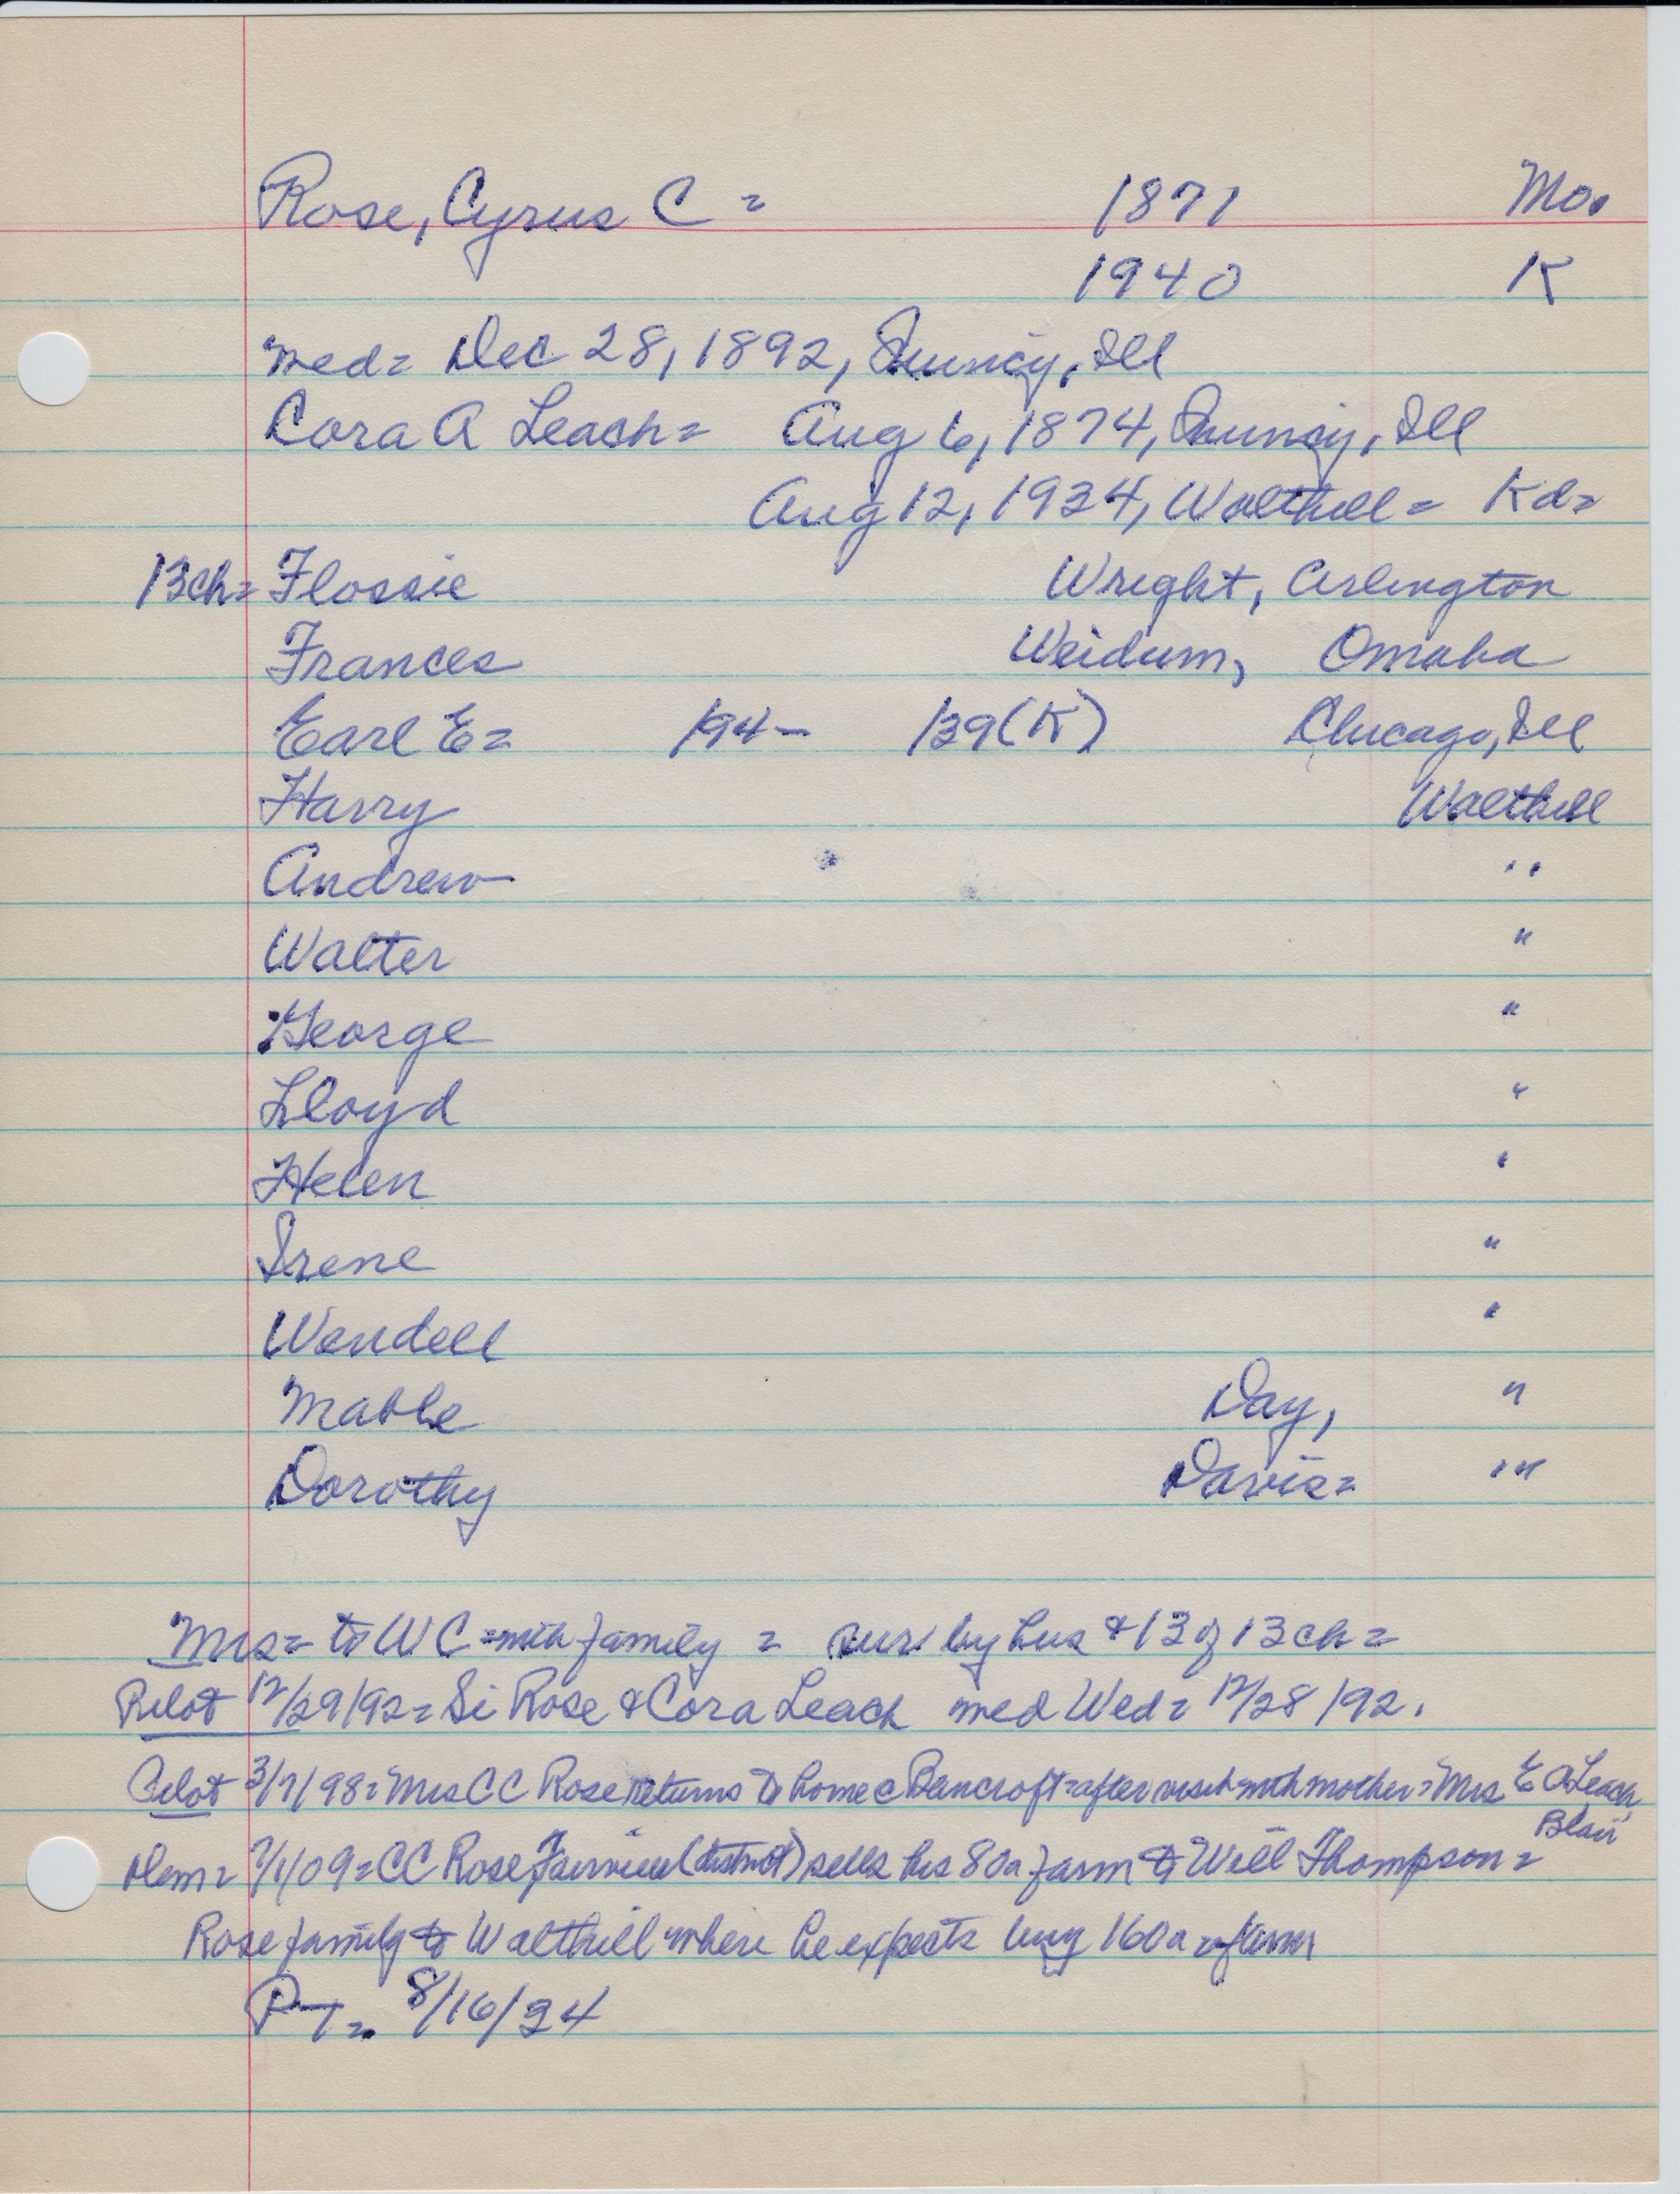 Rose, Cyrus C = 1871 Mo.
1940 K
med = Dec 28, 1892, Quincy, Ill
Cora A Leach = Aug 6, 1874, Quincy, Ill
Aug 12, 1934, Walthill = Kd =
13ch = Flossie Wright, Arlington
Frances Weidum, Omaha
Earl E = 194- 139 (K) Chicago, Ill
Harry Walthill
Andrew "
Walter "
George "
Lloyd "
Helen "
Irene "
Wendell "
Mable Day, "
Dorothy Davis = "
Mrs = to WC = with family = sur by hus & 13 of 13 ch =
Pilot 12/29/92 = Si Rose & Cora Leach med Wed = 12/28/92.
Pilot 3/7/98 = Mrs CC Rose returns to home @ Bancroft = after visit with mother = Mrs E A Leach,
Blair
Dem = 7/1/09 = CC Rose Fairview (district) sells his 80a farm to Will Thompson =
Rose family to Walthill where he expects buy 160a farm
PT = 8/16/34